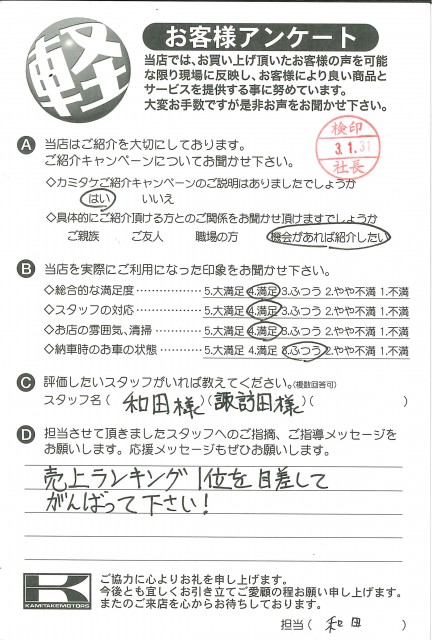 軽
お客様アンケート
当店では、お買い上げ頂いたお客様の声を可能
な限り現場に反映し、お客様により良い商品と
サービスを提供する事に努めています。
大変お手数ですが是非お声をお聞かせ下さい。
検印
3.1.31
社長
A 当店はご紹介を大切にしております。
ご紹介キャンペーンについてお聞かせ下さい。
◇カミタケご紹介キャンペーンのご説明はありましたでしょうか
はい いいえ
◇具体的にご紹介頂ける方とのご関係をお聞かせ頂けますでしょうか
ご親族 ご友人 職場の方 機会があれば紹介したい
B 当店を実際にご利用になった印象をお聞かせ下さい。
◇総合的な満足度 ・・・・・・・・・・・・ 5.大満足 4.満足 3.ふつう 2.やや不満 1.不満
◇スタッフの対応 ・・・・・・・・・・・・ 5.大満足 4.満足 3.ふつう 2.やや不満 1.不満
◇お店の雰囲気、清掃 ・・・・・・・・ 5.大満足 4.満足 3.ふつう 2.やや不満 1.不満
◇納車時のお車の状態 ・・・・・・・・ 5.大満足 4.満足 3.ふつう 2.やや不満 1.不満
C 評価したいスタッフがいれば教えてください。(複数回答可)
スタッフ名 ( 和田様 ) ( 諏訪田様 ) ( )
D 担当させて頂きましたスタッフへのご指摘、ご指導メッセージを
お願いします。応援メッセージもぜひお願いします。
売上ランキング1位を目差して
がんばって下さい!
K
KAMITAKEMOTORS
ご協力に心よりお礼を申し上げます。
今後とも宜しくお引き立てご愛顧の程お願い申し上げます。
またのご来店を心からお待ちしております。
担当 ( 和田 )